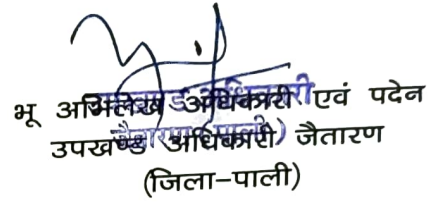 भू अभिलेख अधिकारी एवं पदेन
उपखण्ड अधिकारी जैतारण
(जिला-पाली)